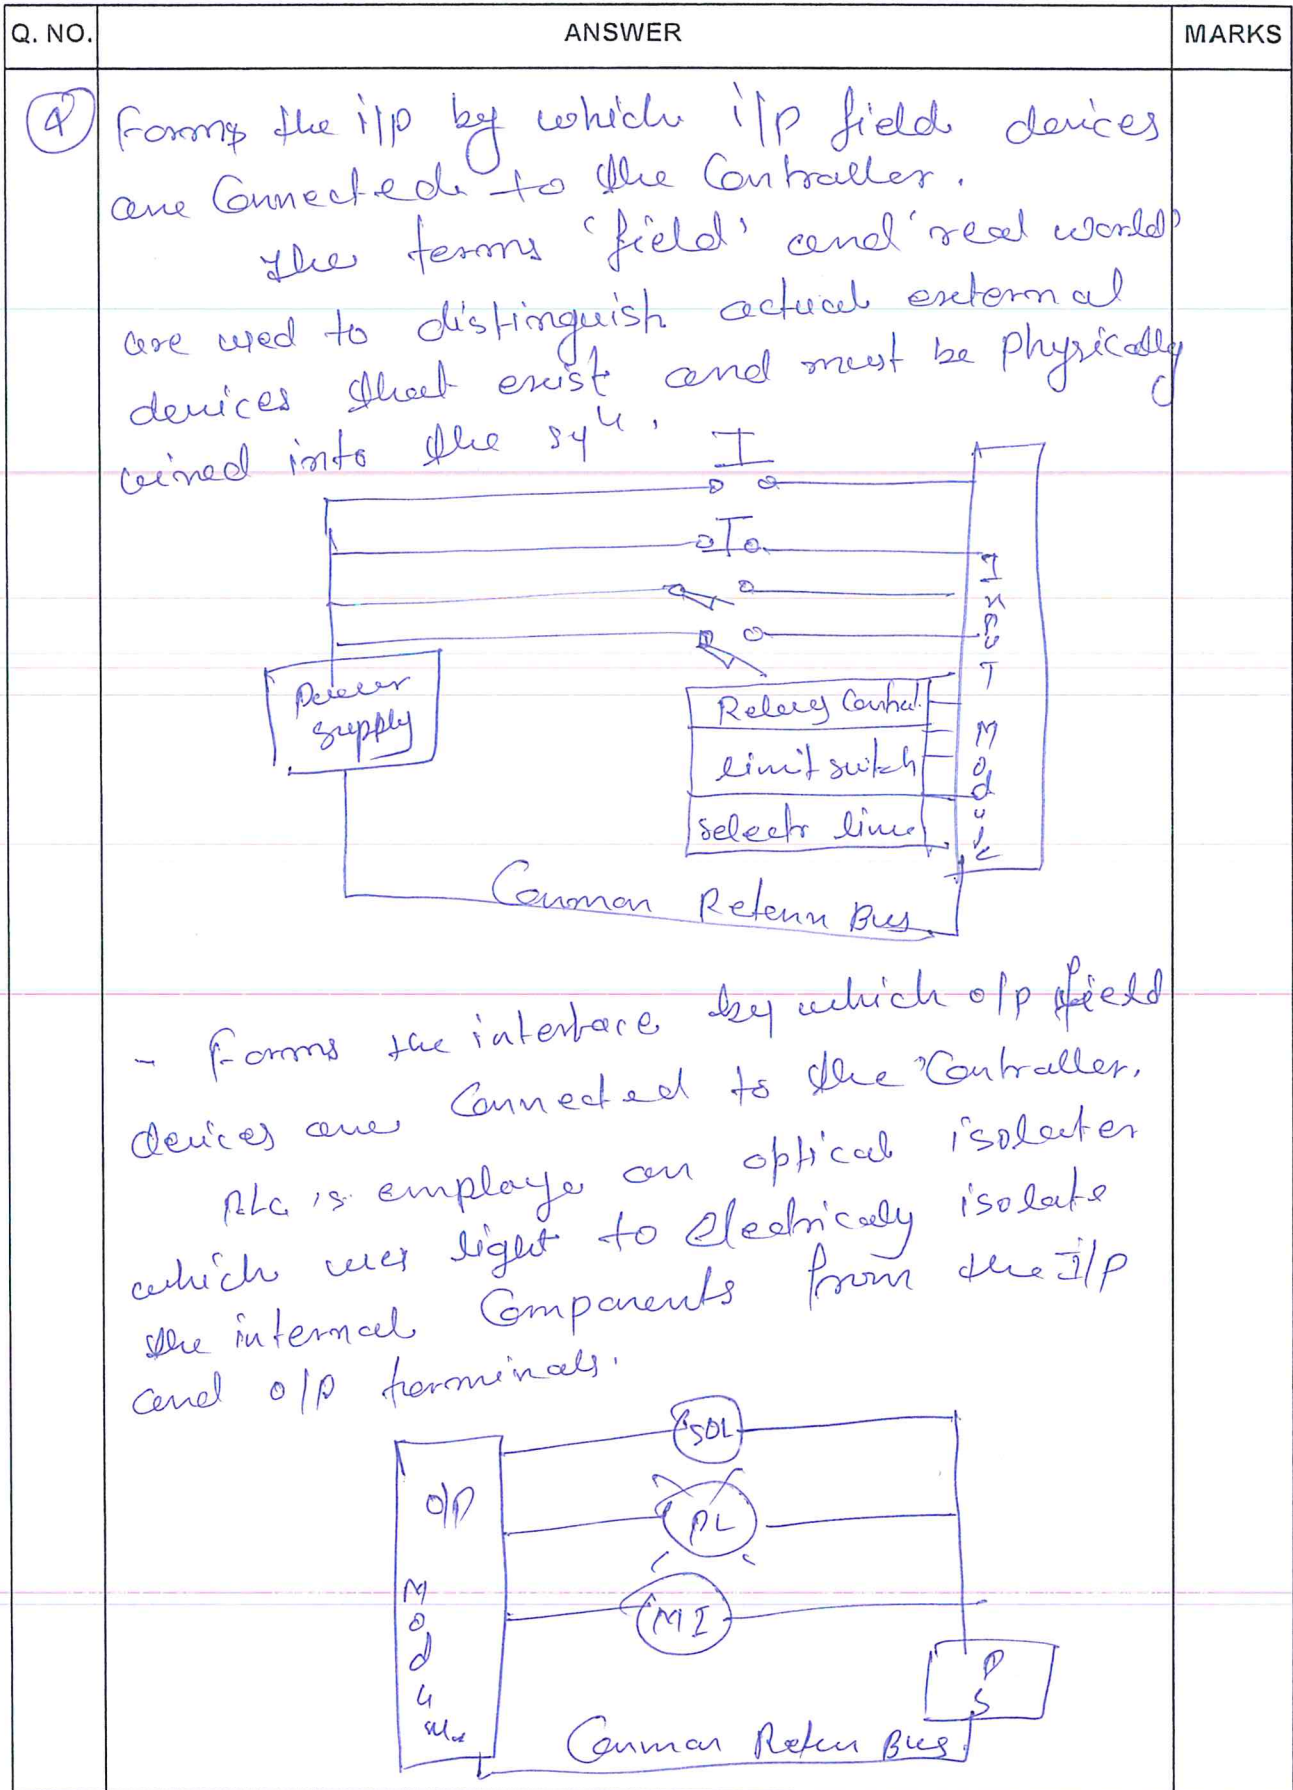 Q. NO. ANSWER MARKS
4 Forms the i/p by which i/p field devices
are Connected to the Controller.
The terms 'field' and 'real world'
are used to distinguish actual external
devices that exist and must be physically
wired into the sy
Power
supply
INPUT Module
Relay Contact
limit switch
Selectr line
Common Return Bus
- Forms the interface by which o/p field
devices are Connected to the Controller.
PLC is employe an optical isolater
which uses light to Electricaly isolate
the internal Components from the I/P
and o/p terminals.
SOL
O/P
PL
MI
P
S
Common Retun Bus